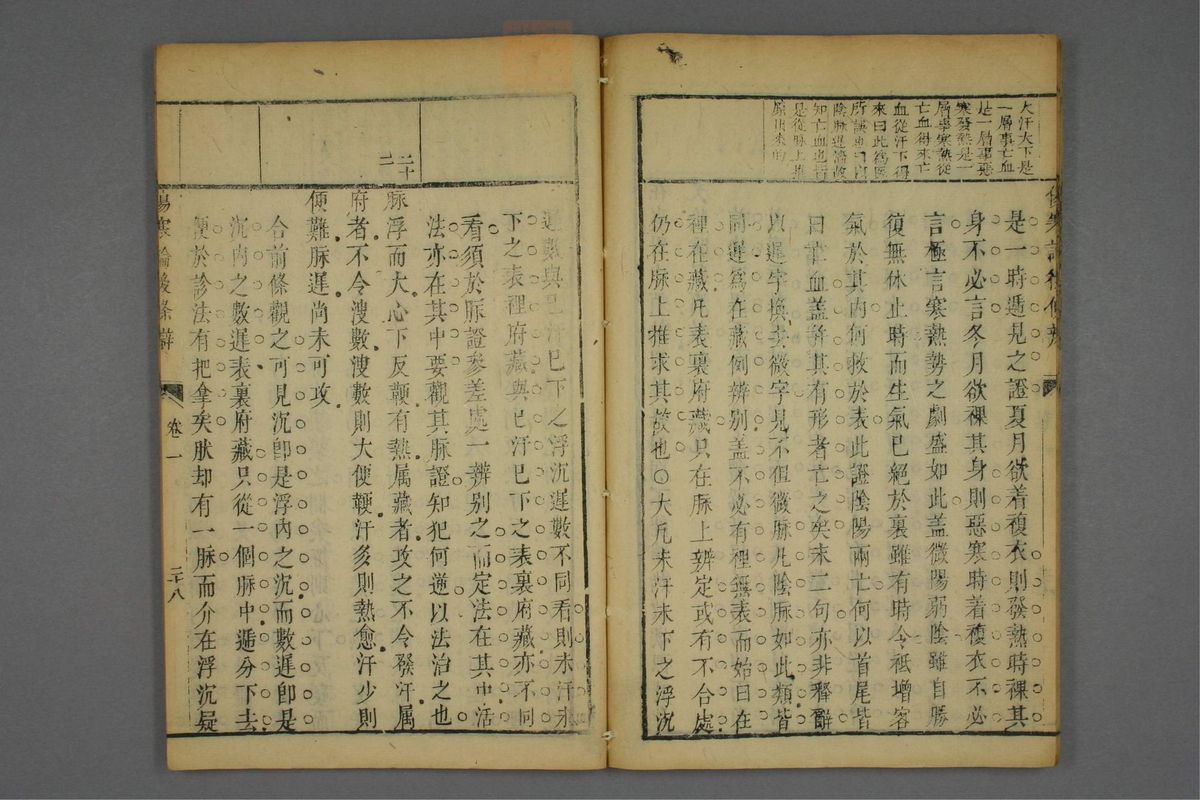 大汗大下是
一層事亡血
是一層事惡
寒發熱是一
層事寒熱從
亡血得來亡
血從汗下得
來曰此為醫
所
陰脉遲濇故
知亡血也
是從脉上推
原出來的
是一時遞見之證夏月欲着複衣則發熱時裸其
身不必言冬月欲裸其身則惡寒時着複衣不必
言極言寒熱勢之劇盛如此蓋微陽弱陰雖自勝
復無休止時而生氣已絕於裏雖有時令祗增客
氣於其內何救於表此證陰陽兩亡何以首尾皆
曰亡血蓋舉其有形者亡之矣末二句亦非釋辭
以遲字換去微字見不狃微脉凡陰脉如此類皆
同遲爲在藏例辨别蓋不必有裡無表而始曰在
裡在藏凡表裏府藏只在脉上辨定或有不合處
仍在脉上推求其故也○大凡未汗未下之浮沉
遲數與已汗已下之浮沉遲數不同看則未汗未
下之表裡府藏與已汗已下之表裏府藏亦不同
看須於脉證參差處一辨别之而定法在其中活
法亦在其中要觀其脉證知犯何逆以法治之也
二十
二
脉浮而大心下反鞕有熱属藏者攻之不令發汗属
府者不令溲數溲數則大便鞕汗多則熱愈汗少則
便難脉遲尚未可攻
合前條觀之可見沉卽是浮內之沉而數遲卽是
沉內之數遲表裏府藏只從一個脉中遞分下去
便於診法有把拿矣肰却有一脉而介在浮沉疑
傷寒論後条辯
卷一
二十八